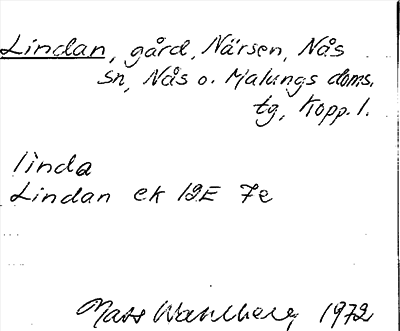 Lindan, gård, Närsen, Nås
Sn, Nås o. Malungs doms.
tg, Kopp. l.
linda
Lindan ek 12E 7e
Mats Wahlberg 1972